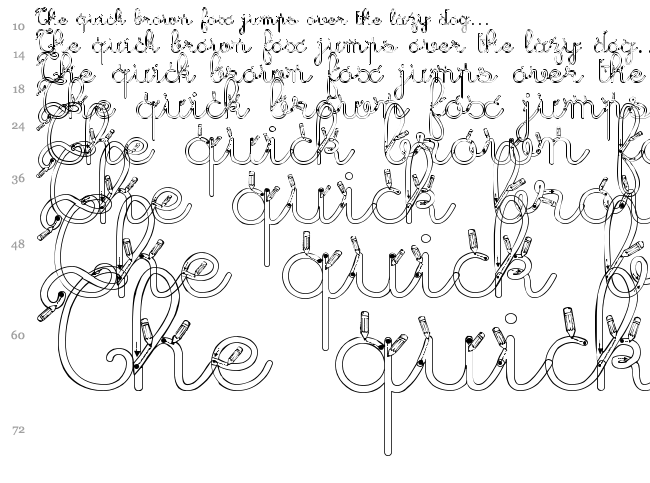 10 The quick brown fox jumps over the lazy dog...
14 The quick brown fox jumps over the lazy dog..
18 The quick brown fox jumps over the
24 The quick brown fox jump
36 The quick brown
48 The quick
60 The quick
72 The quick